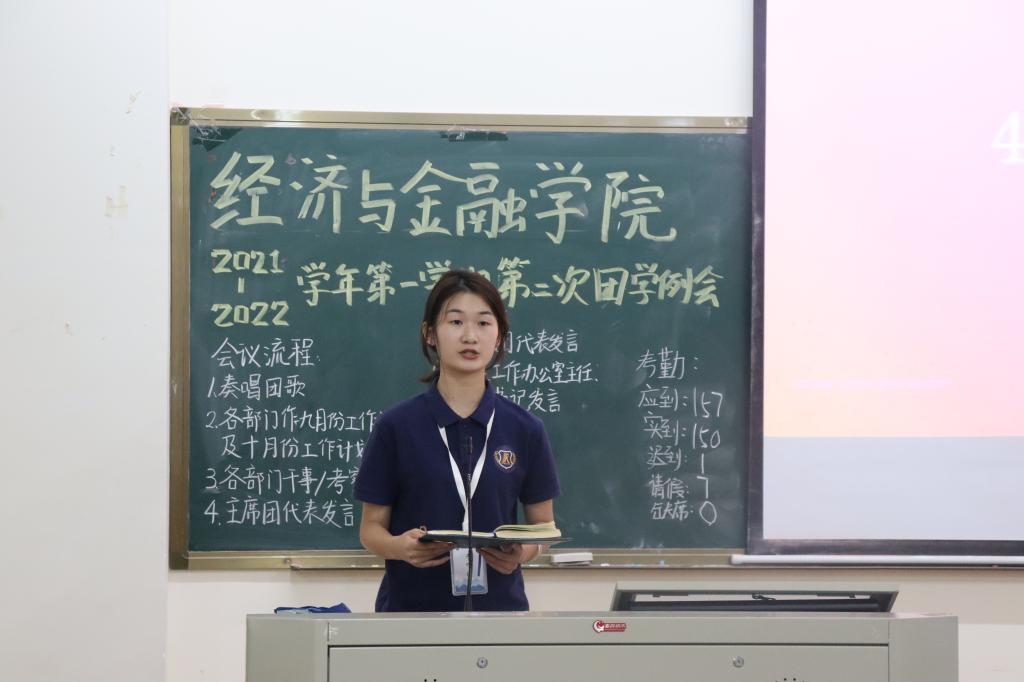 经济与金融学院
2021
-
2022
学年第一学 第二次团学例会
会议流程:
1.奏唱团歌
2.各部门作九月份工作
及十月份工作计划
3.各部门干事/考
4.主席团代表发言
代表发言
工作办公室主任、
书记发言
考勤:
应到:157
实到:150
迟到:1
请假:7
缺席:0
4